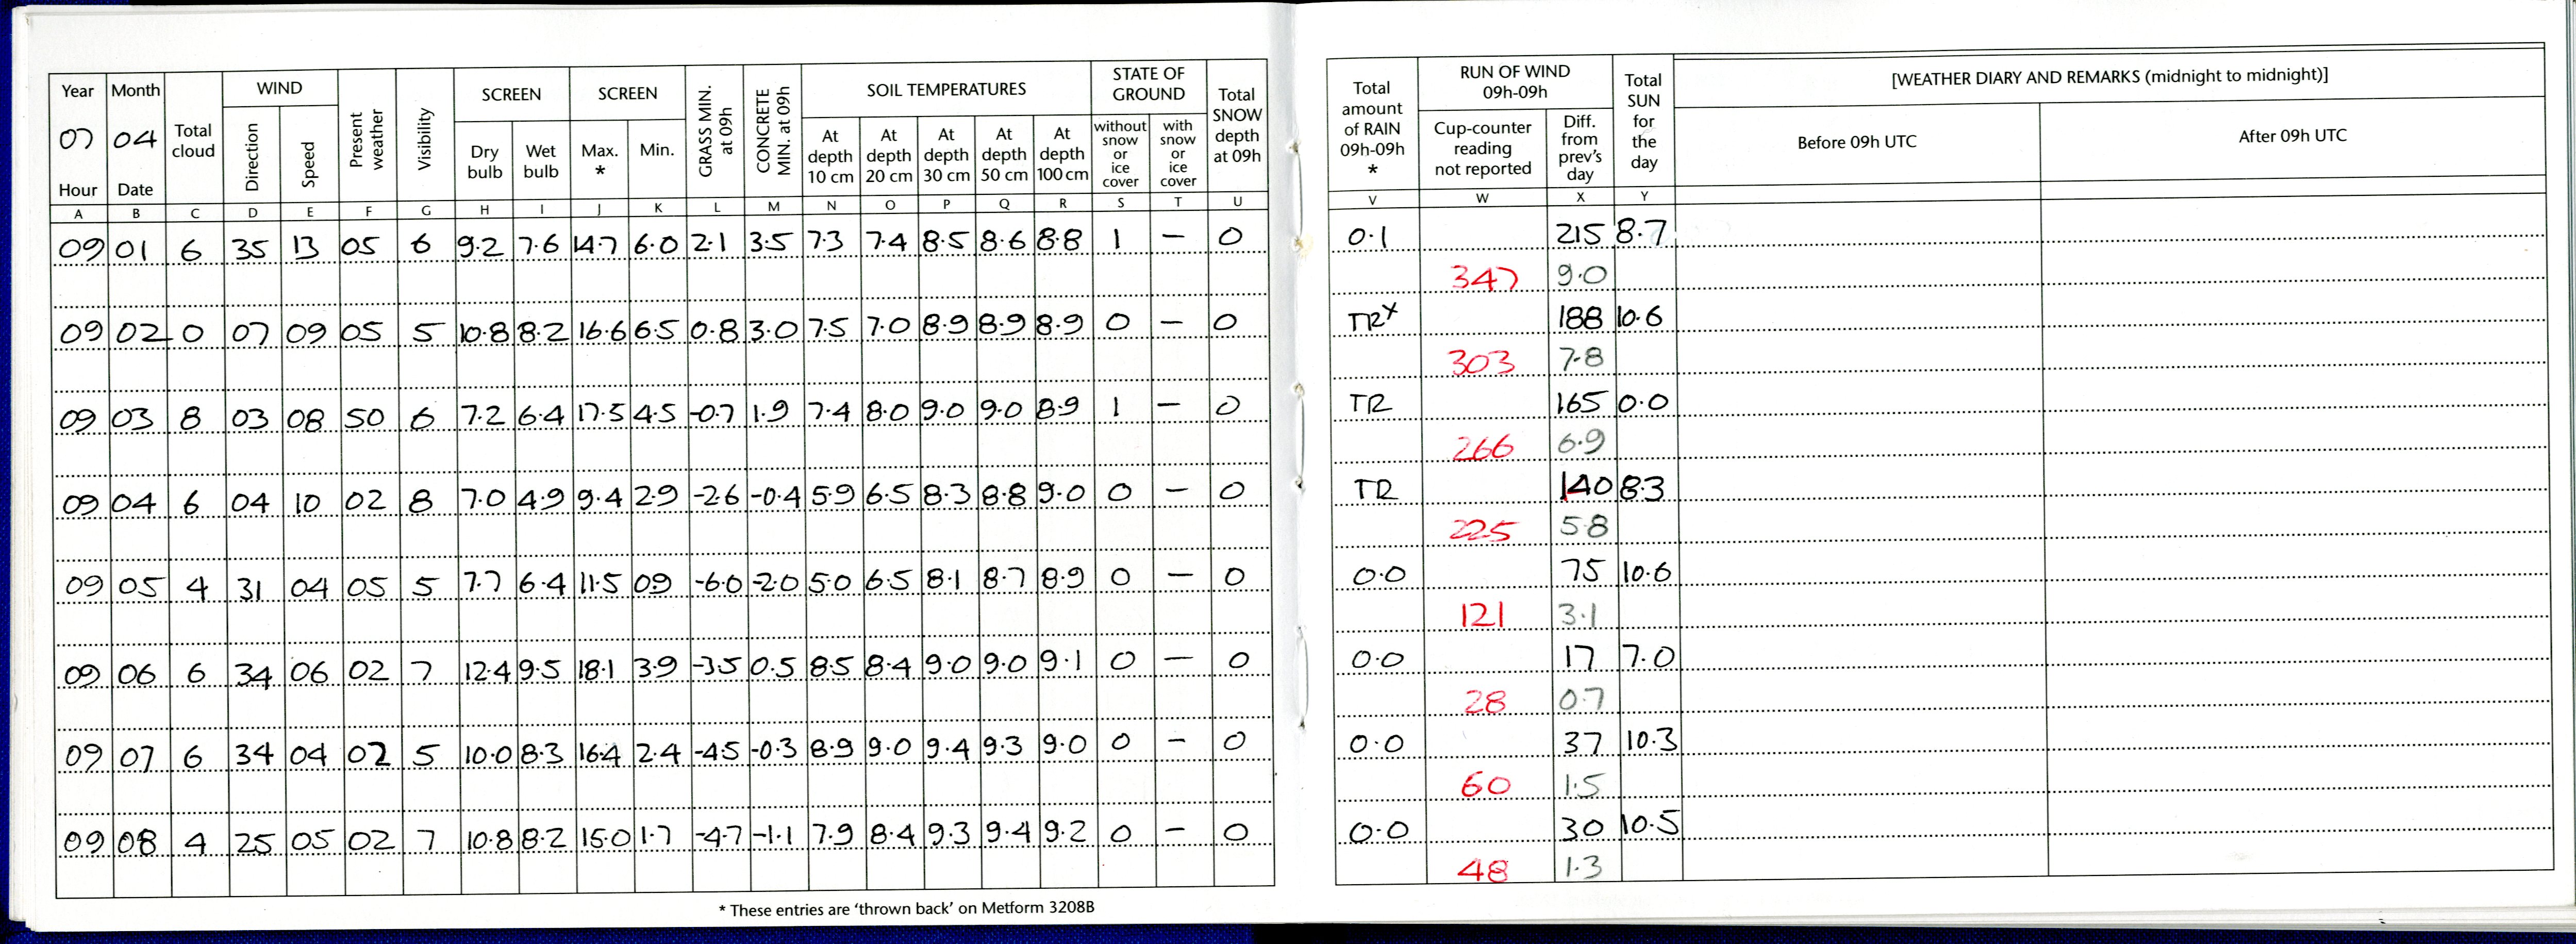 Year Month Total cloud WIND Present weather Visibility SCREEN SCREEN GRASS MIN. at 09h CONCRETE MIN. at 09h SOIL TEMPERATURES STATE OF GROUND Total SNOW depth at 09h Total amount of RAIN 09h-09h * RUN OF WIND 09h-09h Total SUN for the day [WEATHER DIARY AND REMARKS (midnight to midnight)]
07 04 Direction Speed Dry bulb Wet bulb Max. * Min. At depth 10 cm At depth 20 cm At depth 30 cm At depth 50 cm At depth 100 cm without snow or ice cover with snow or ice cover Cup-counter reading not reported Diff. from prev's day Before 09h UTC After 09h UTC
Hour Date
A B C D E F G H I J K L M N O P Q R S T U V W X Y
09 01 6 35 13 05 6 9.2 7.6 14.7 6.0 2.1 3.5 7.3 7.4 8.5 8.6 8.8 1 — 0 0.1 215 8.7
347 9.0
09 02 0 07 09 05 5 10.8 8.2 16.6 6.5 0.8 3.0 7.5 7.0 8.9 8.9 8.9 0 — 0 TRx 188 10.6
303 7.8
09 03 8 03 08 50 6 7.2 6.4 17.5 4.5 -0.7 1.9 7.4 8.0 9.0 9.0 8.9 1 — 0 TR 165 0.0
266 6.9
09 04 6 04 10 02 8 7.0 4.9 9.4 2.9 -2.6 -0.4 5.9 6.5 8.3 8.8 9.0 0 — 0 TR 140 8.3
225 5.8
09 05 4 31 04 05 5 7.7 6.4 11.5 0.9 -6.0 -2.0 5.0 6.5 8.1 8.7 8.9 0 — 0 0.0 75 10.6
121 3.1
09 06 6 34 06 02 7 12.4 9.5 18.1 3.9 -3.5 0.5 8.5 8.4 9.0 9.0 9.1 0 — 0 0.0 17 7.0
28 0.7
09 07 6 34 04 02 5 10.0 8.3 16.4 2.4 -4.5 -0.3 8.9 9.0 9.4 9.3 9.0 0 — 0 0.0 37 10.3
60 1.5
09 08 4 25 05 02 7 10.8 8.2 15.0 1.7 -4.7 -1.1 7.9 8.4 9.3 9.4 9.2 0 — 0 0.0 30 10.5
48 1.3
* These entries are 'thrown back' on Metform 3208B